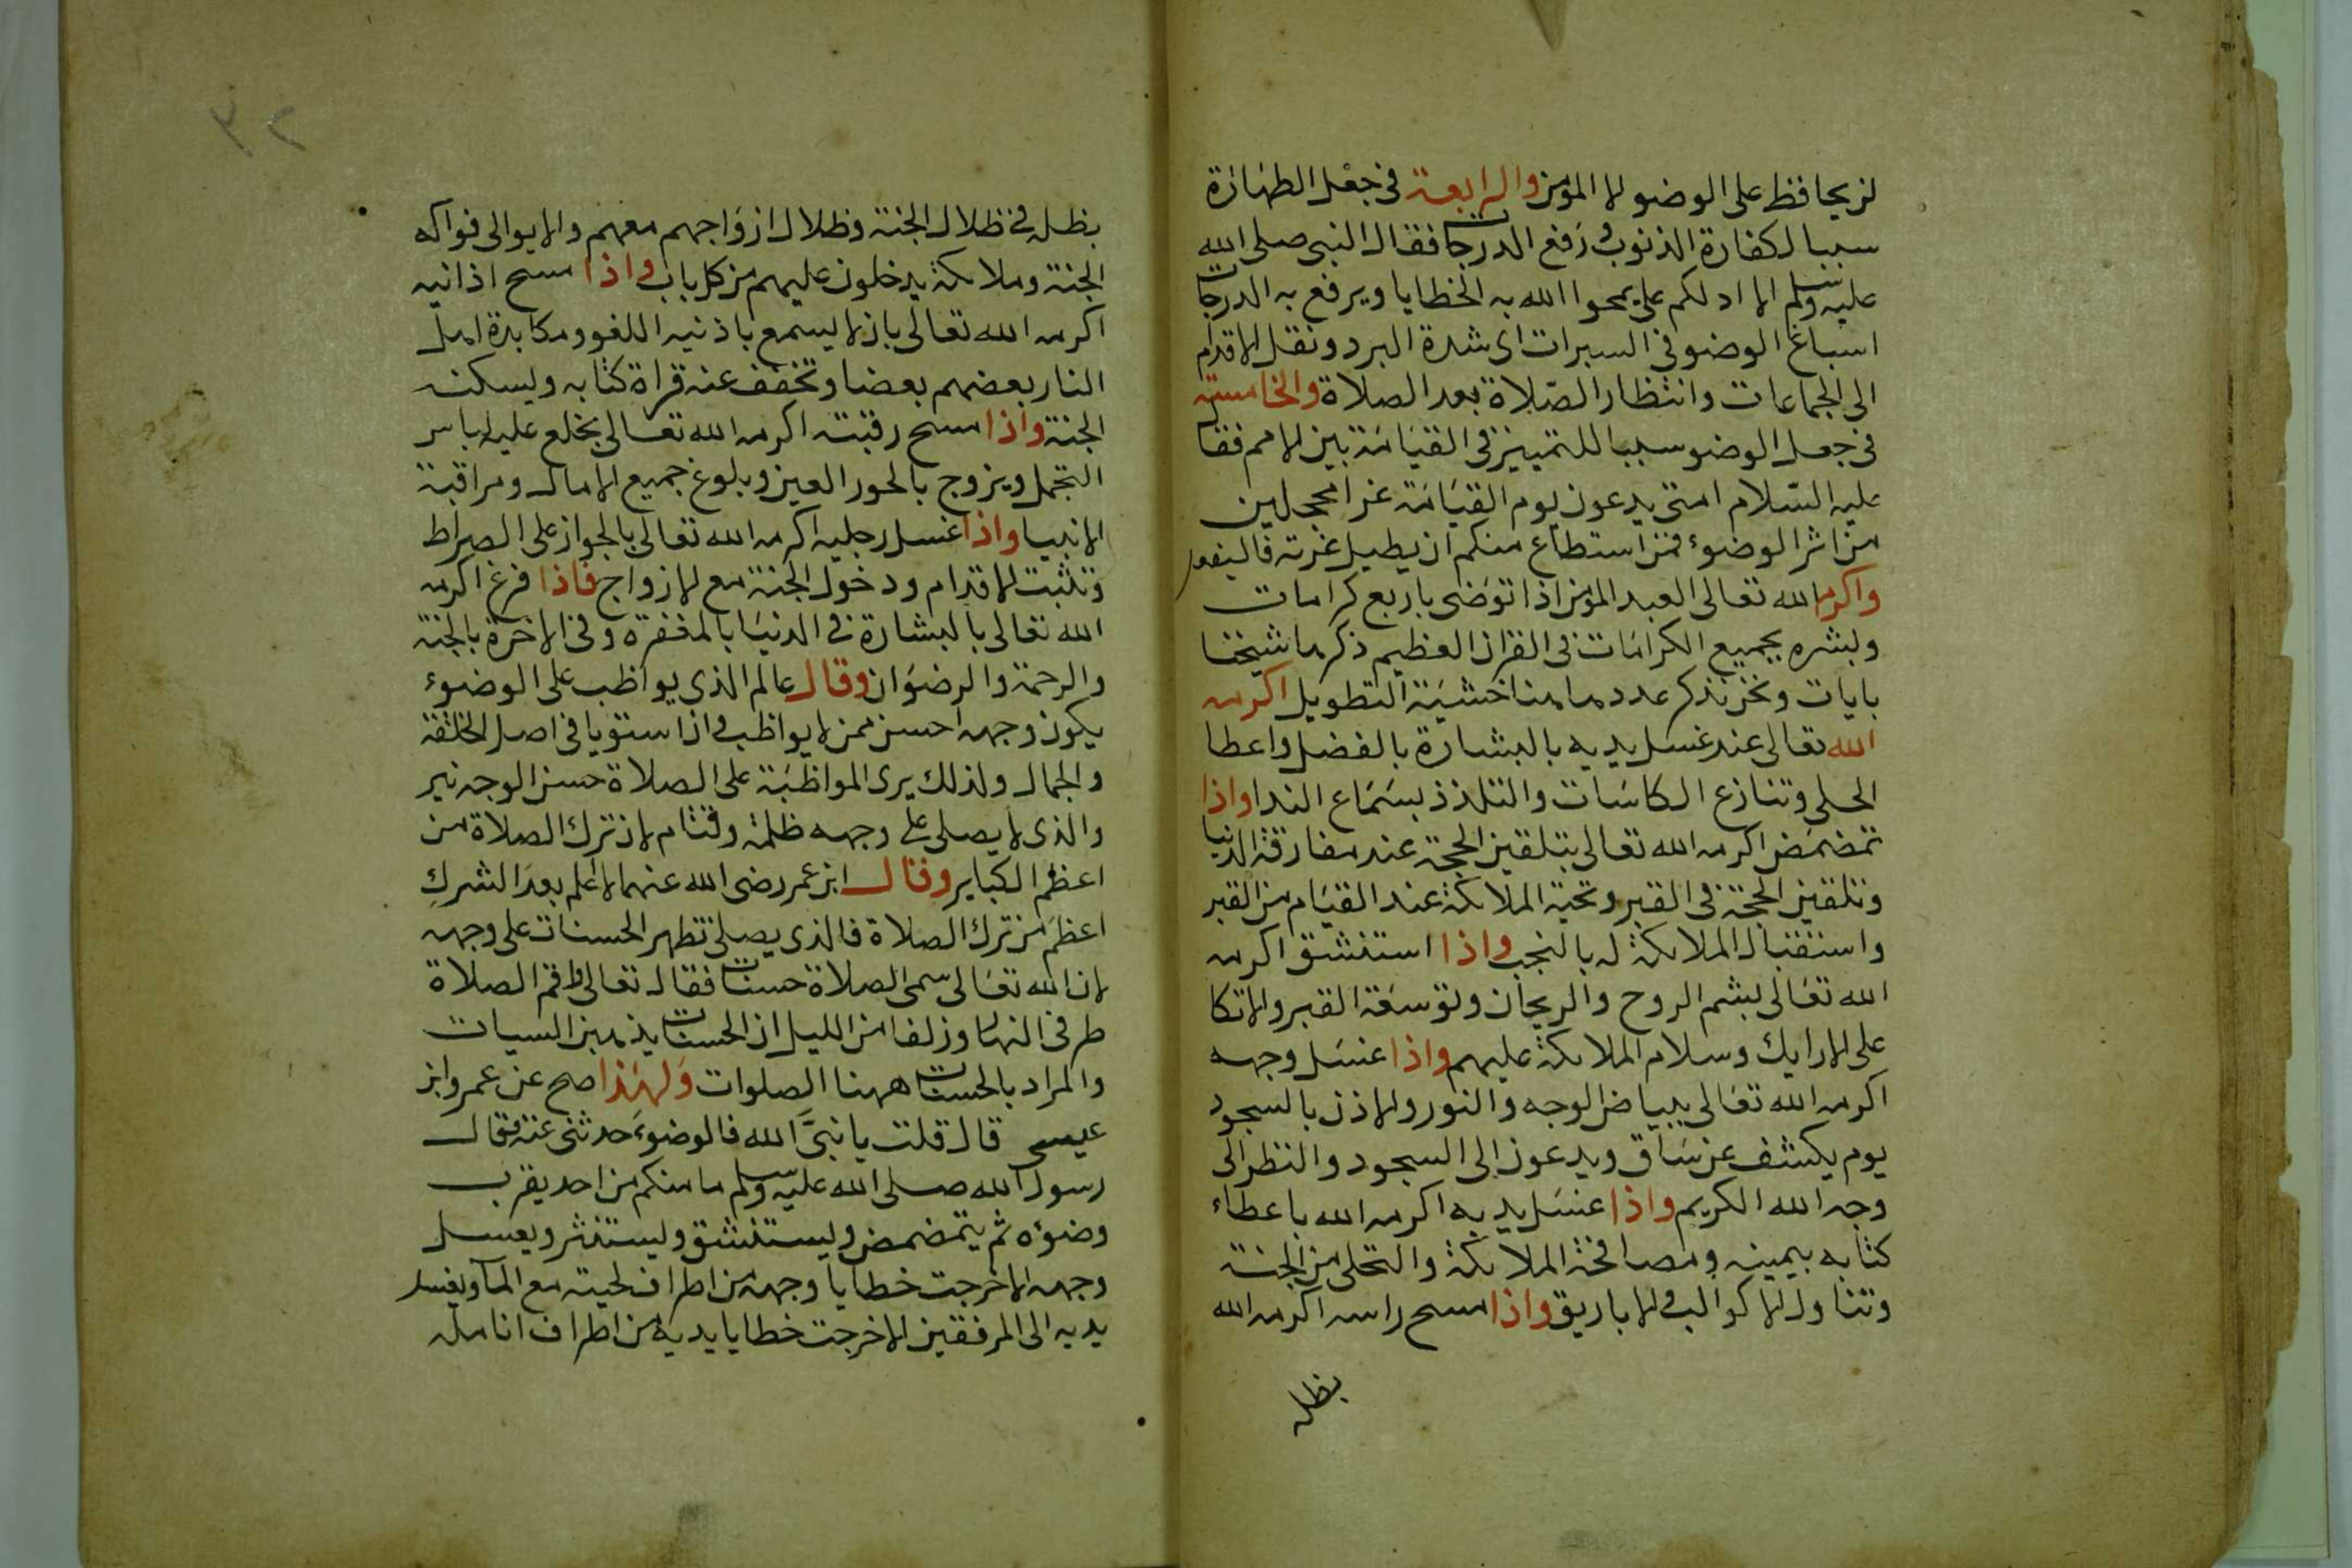 لن يحافظ على الوضو الا المؤمن والرابعة فى جعل الطهارة
سببا لكفارة الذنوب ورفع الدرجات فقال النبى صلى الله
عليه وسلم الا ادلكم على يمحوا الله به الخطايا ويرفع به الدرجات
اسباغ الوضو فى السبرات اى شدة البرد ونقل الاقدام
الى الجماعات وانتظار الصلاة بعد الصلاة والخامسة
فى جعل الوضو سببا للتمييز فى القيامة بين الامم فقال
عليه السلام امتى يدعون يوم القيامة غرا محجلين
من اثر الوضوء فمن استطاع منكم ان يطيل غرته فاليفعل
واكرم الله تعالى العبد المؤمن اذا توضى باربع كرامات
وبشره بجميع الكرامات فى القران العظيم ذكرها شيخنا
بايات ونحن نذكر عددها هنا خشية التطويل اكرمه
الله تعالى عند غسل يديه بالبشارة بالفضل واعطا
الحلى وتنازع الكاسات والتلذذ بسماع الندا واذا
تمضمض اكرمه الله تعالى بتلقين الحجة عند مفارقة الدنيا
وتلقين الحجة فى القبر وتحية الملائكة عند القيام من القبر
واستقبال الملائكة له بالنجب واذا استنشق اكرمه
الله تعالى بشم الروح والريحان وتوسعة القبر والاتكا
على الارايك وسلام الملائكة عليهم واذا غسل وجهه
اكرمه الله تعالى ببياض الوجه والنور والاذن بالسجود
يوم يكشف عن ساق ويدعون الى السجود والنظر الى
وجه الله الكريم واذا غسل يديه اكرمه الله باعطاء
كتابه بيمينه ومصافحة الملائكة والتحلى من الجنة
وتناول الاكواب والاباريق واذا مسح راسه اكرمه الله
بظله
٣٢
بظله فى ظلال الجنة وظلال ازواجهم معهم والايوالى فواكه
الجنة وملائكة يدخلون عليهم من كل باب واذا مسح اذانيه
اكرمه الله تعالى بان لا يسمع باذنيه اللغو ومكابدة اهل
النار بعضهم بعضا وتخفف عنه قراة كتابه ويسكنه
الجنة واذا مسح رقبته اكرمه الله تعالى بخلع عليه لباس
التجمل ويزوج بالحور العين وبلوغ جميع الامال ومراقبة
الانبيا واذا غسل رجليه اكرمه الله تعالى بالجواز على الصراط
وتثبت الاقدام ودخول الجنة مع الازواج فاذا فرغ اكرمه
الله تعالى بالبشارة فى الدنيا بالمغفرة وفى الاخرة بالجنة
والرحمة والرضوان وقال عالم الذى يواظب على الوضوء
يكون وجهه احسن ممن لا يواظب وان استويا فى اصل الخلقة
والجمال ولذلك يرى المواظبة على الصلاة حسن الوجه نير
والذى لا يصلى على وجهه ظلمة وقتام لان ترك الصلاة من
اعظم الكباير وقال ابن عمر رضى الله عنهما لا اعلم بعد الشرك
اعظم من ترك الصلاة فالذى يصلى تظهر الحسنات على وجهه
لان الله تعالى سمى الصلاة حسنات فقال تعالى واقم الصلاة
طرفى النهار وزلفا من الليل ان الحسنات يذهبن السيات
والمراد بالحسنات ههنا الصلوات ولهذا صح عن عمرو ابن
عيسى قال قلت يا نبى الله فالوضوء حدثنى عنه فقال
رسول الله صلى الله عليه وسلم ما منكم من احد يقرب
وضوءه ثم يتمضمض ويستنشق ويستنثر ويغسل
وجهه الا خرجت خطايا وجهه من اطراف لحيته مع الماء ويغسل
يديه الى المرفقين الا خرجت خطايا يديه من اطراف انامله